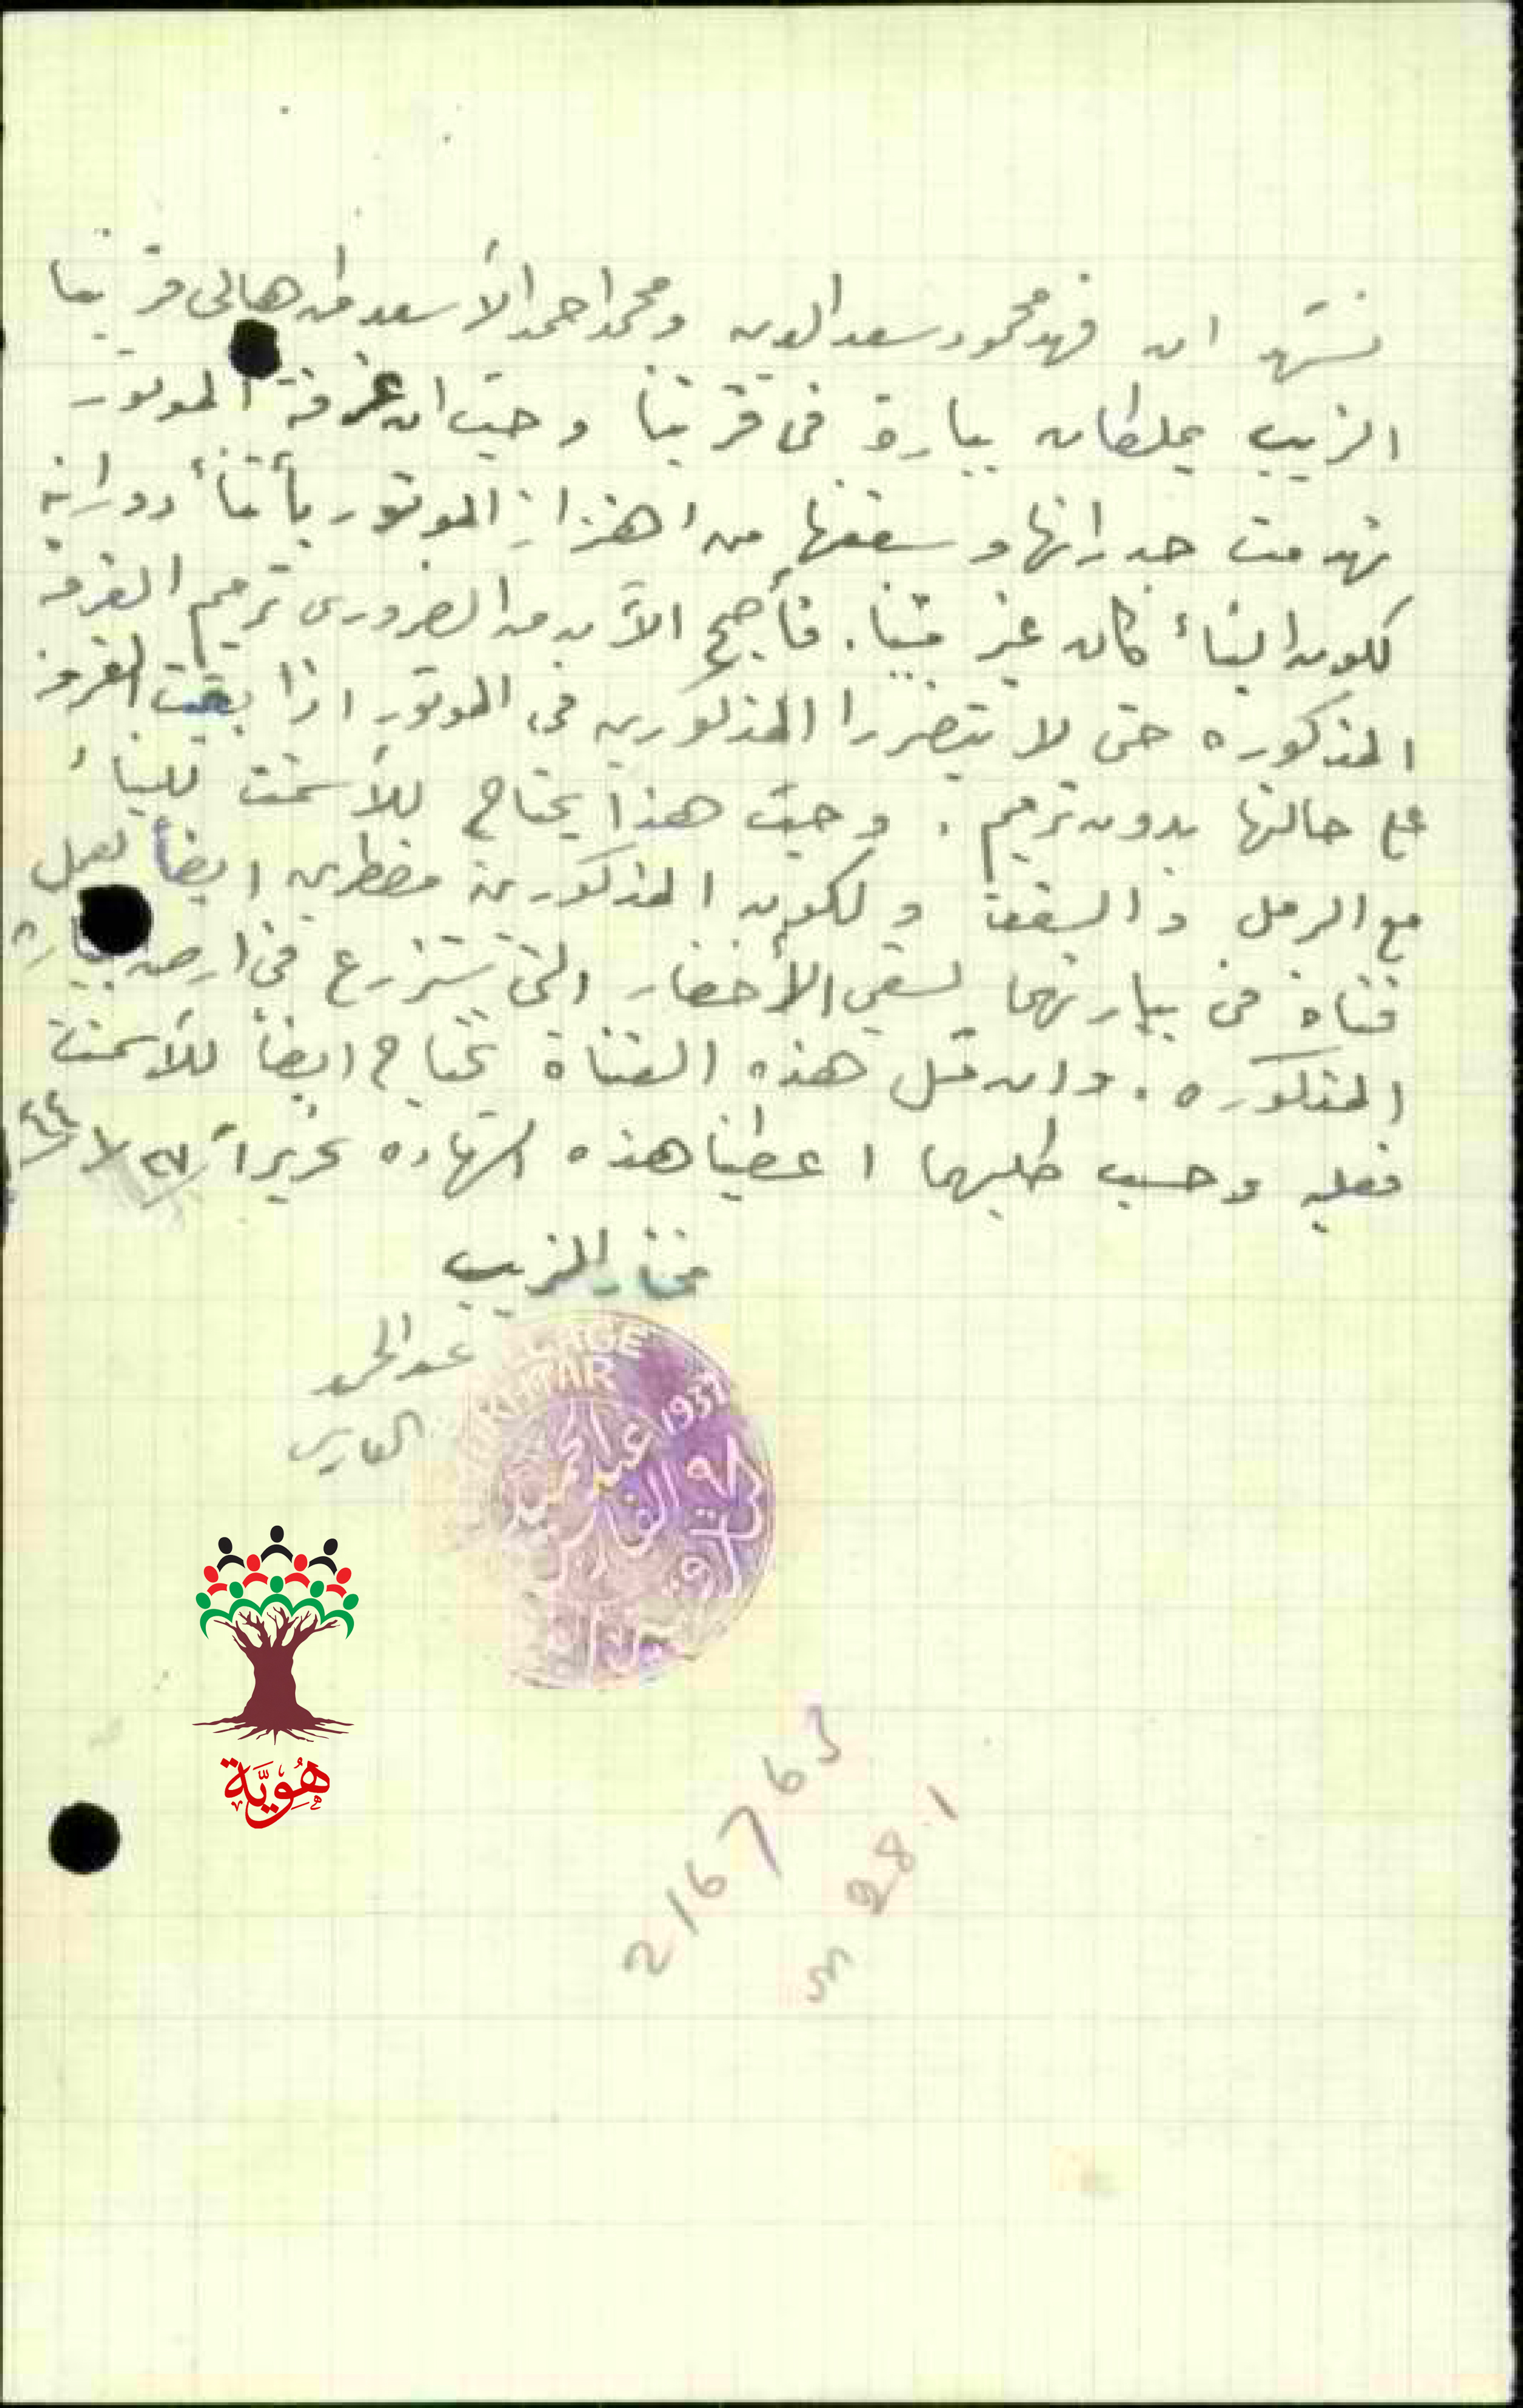 نشهد ان فهد محمود سعد الدين ومحمد احمد الأسعد من اهالي قريتنا
الزيب يملكان بيارة في قريتنا وحيث ان غرفة الموتور
تهدمت جدرانها وسقفها من اهتزاز الموتور بأثناء دورانه
لكون البناء كان غير متينا. فأصبح الآن من الضروري ترميم الغرفة
المذكوره حتى لا يتضررا المذكورين في الموتور اذا بقيت الغرفة
على حالتها بدون ترميم. وحيث هذا يحتاج للأسمنت للبناء
مع الرمل والسقف ولكون المذكورين مضطرين ايضاً لعمل
قناة في بيارتهما لسقي الأخضار التي ستزرع في ارض
المذكوره. وان مثل هذه القناة تحتاج ايضاً للأسمنت
فعليه وحسب طلبهما اعطينا هذه الشهاده تحريراً ٢٧/٧/٤٤
مختار الزيب
عبد الحميد
الفارس
VILLAGE
MUKHTAR
1937
عبد الحميد
الفارس
قرية
هُوِيَّة
216763
281